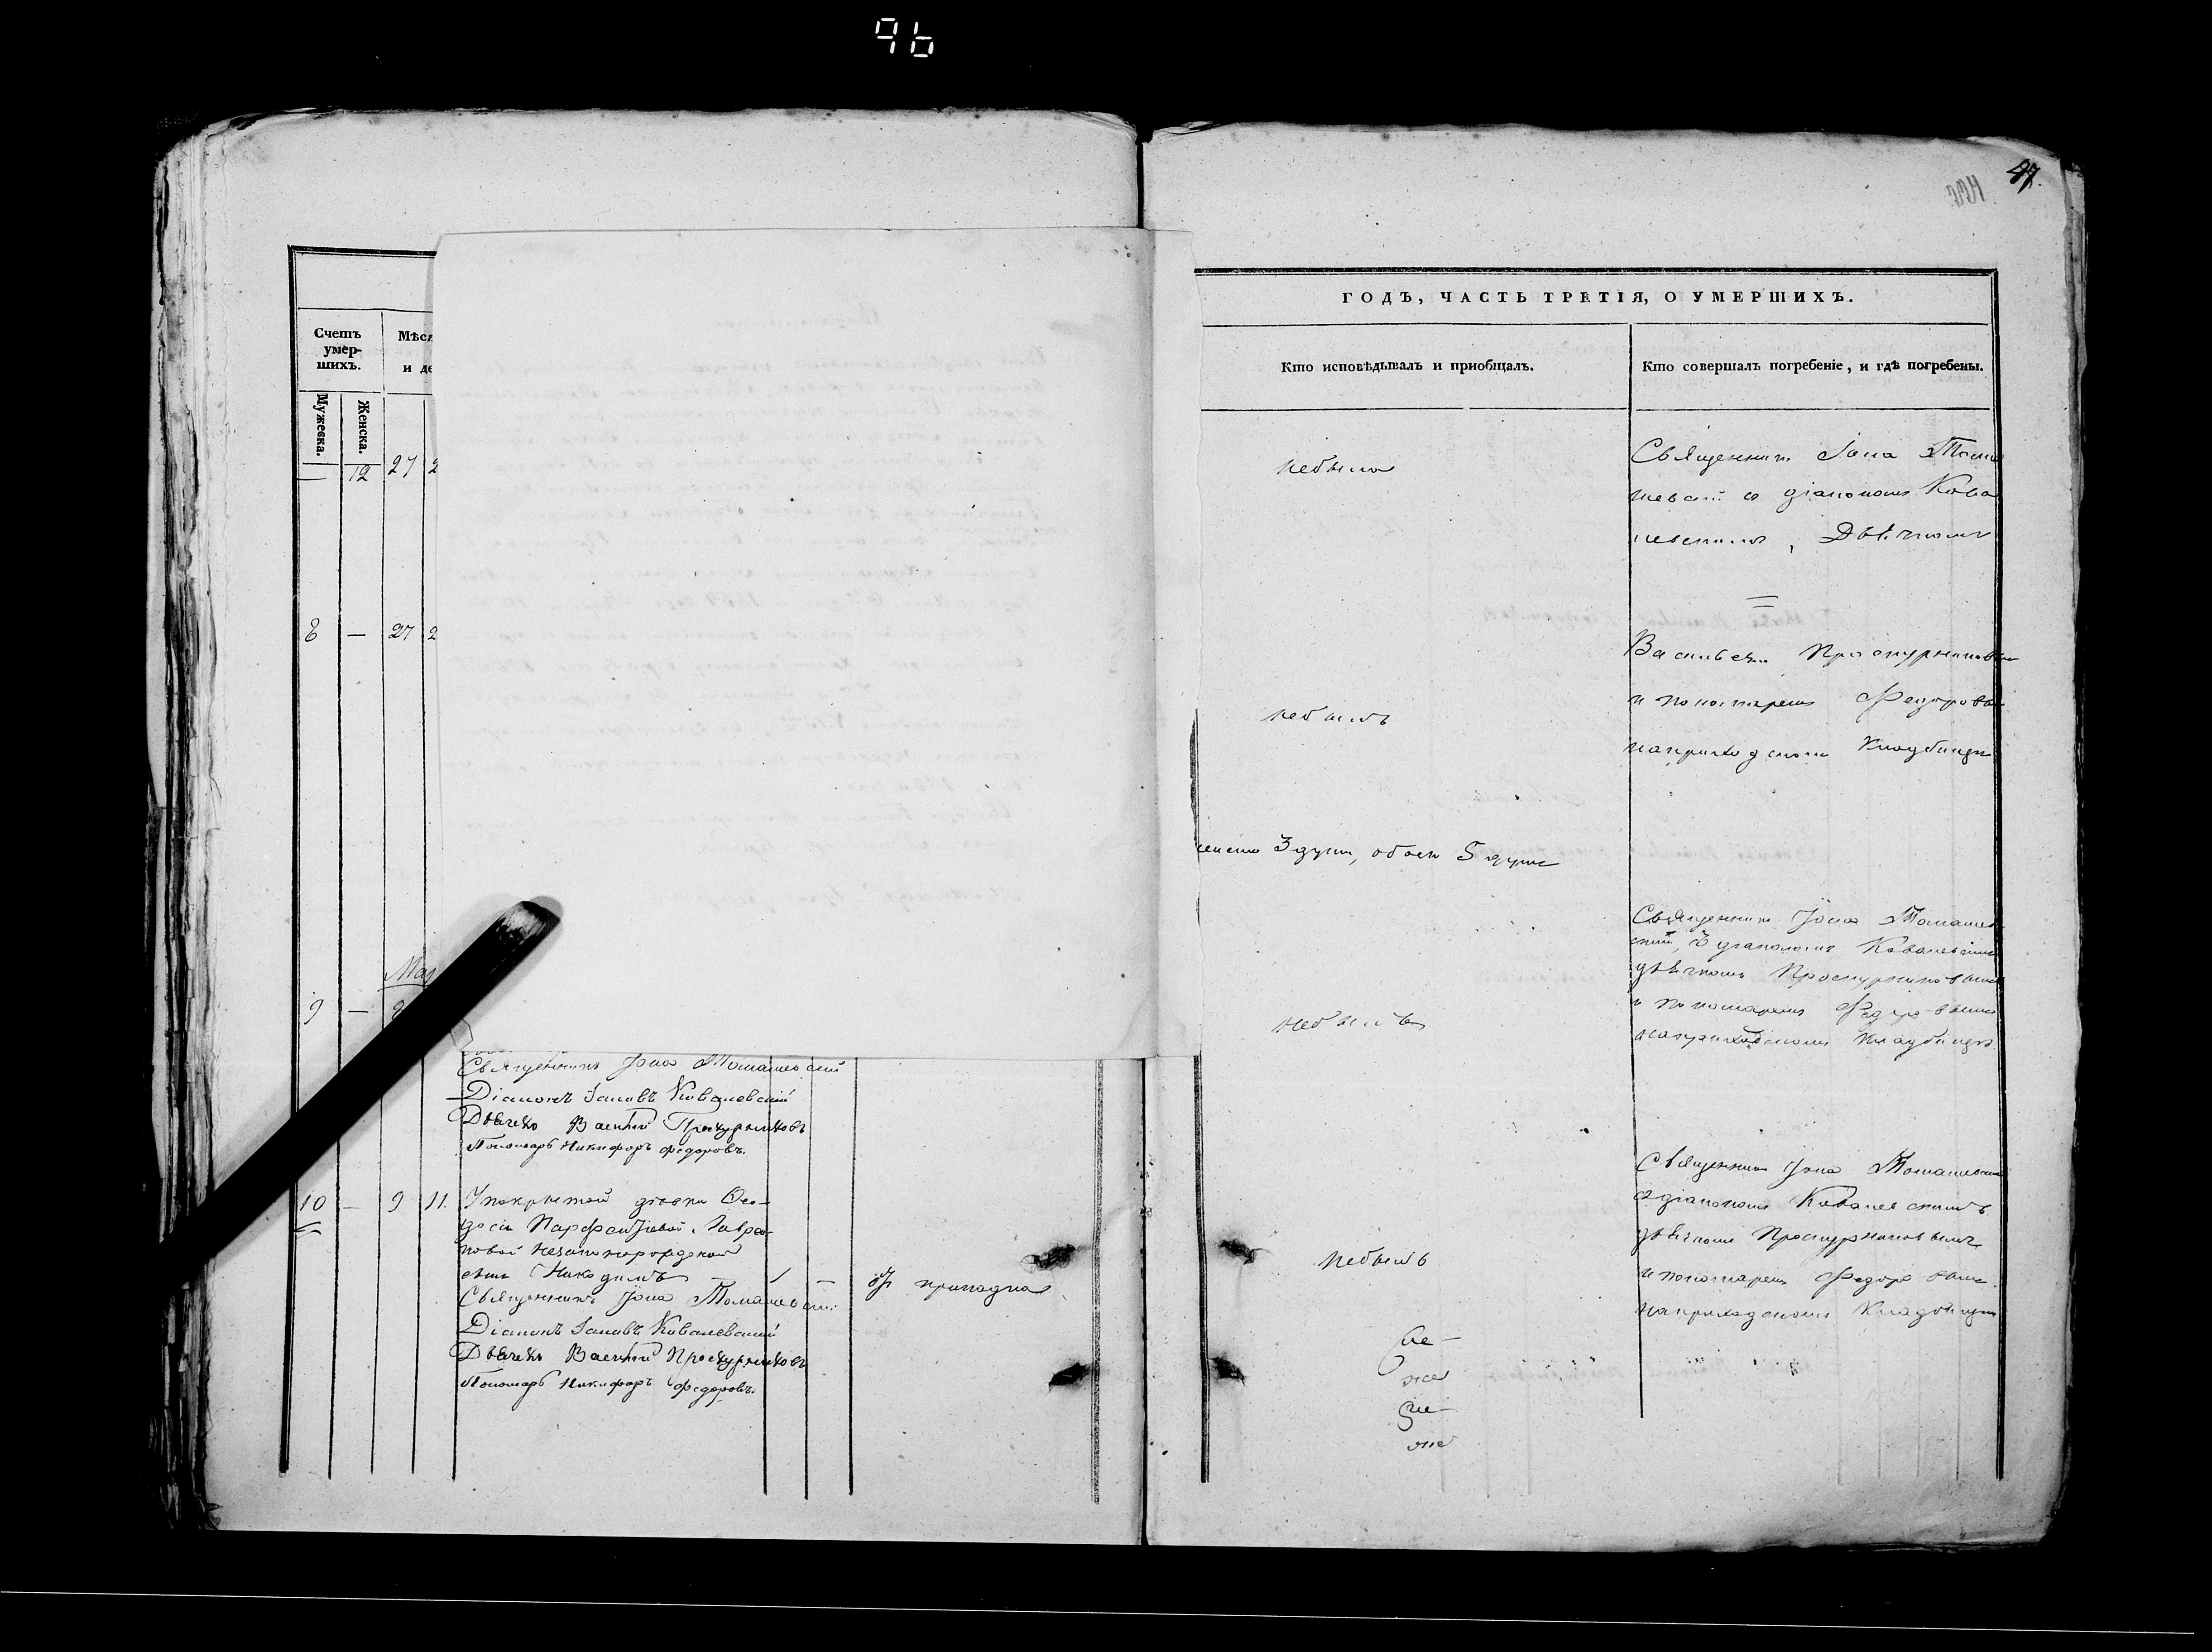 96
Счетъ
умер-
шихъ.
Мужеска.
Женска.
Мѣся
и де
— 12 27 2
8 — 27 2
Мар
9 — 9
Священникъ Іона Томашевскій
Діаконъ Іаковъ Ковалевскій
Дьячекъ Василій Проскурниковъ
Пономарь Никифоръ Федоровъ.
10 — 9 11. У покрытой дѣвки Фео-
досіи Парфентіевой Лавре-
новой незаконнорожденной
сынъ Никодимъ 1 — отъ припадка
Священникъ Іона Томашевскій
Діаконъ Іаковъ Ковалевскій
Дьячекъ Василій Проскурниковъ
Пономарь Никифоръ Федоровъ.
47.
ГОДЪ, ЧАСТЬ ТРЕТІЯ, О УМЕРШИХЪ.
Кто исповѣдывалъ и пріобщалъ.
Кто совершалъ погребеніе, и гдѣ погребены.
небыла
Священникъ Іона Тома
шевскій съ діакономъ Кова
левскимъ, Дьячкомъ
Васильемъ Проскурниковым
и пономаремъ Федоровы
наприходскомъ Кладбищѣ
небылъ
3 души, обоего 5 душъ
Священникъ Іона Томашев
скій, съ діакономъ Ковалевскимъ
дьячкомъ Проскурниковымъ
и пономаремъ Федоровымъ
наприходскомъ кладбищѣ
небылъ
Священникъ Іона Томашевскій
съ діакономъ Ковалевскимъ
дьячкомъ Проскурниковымъ
и пономаремъ Федоровымъ
наприходскомъ Кладбищѣ
небылъ